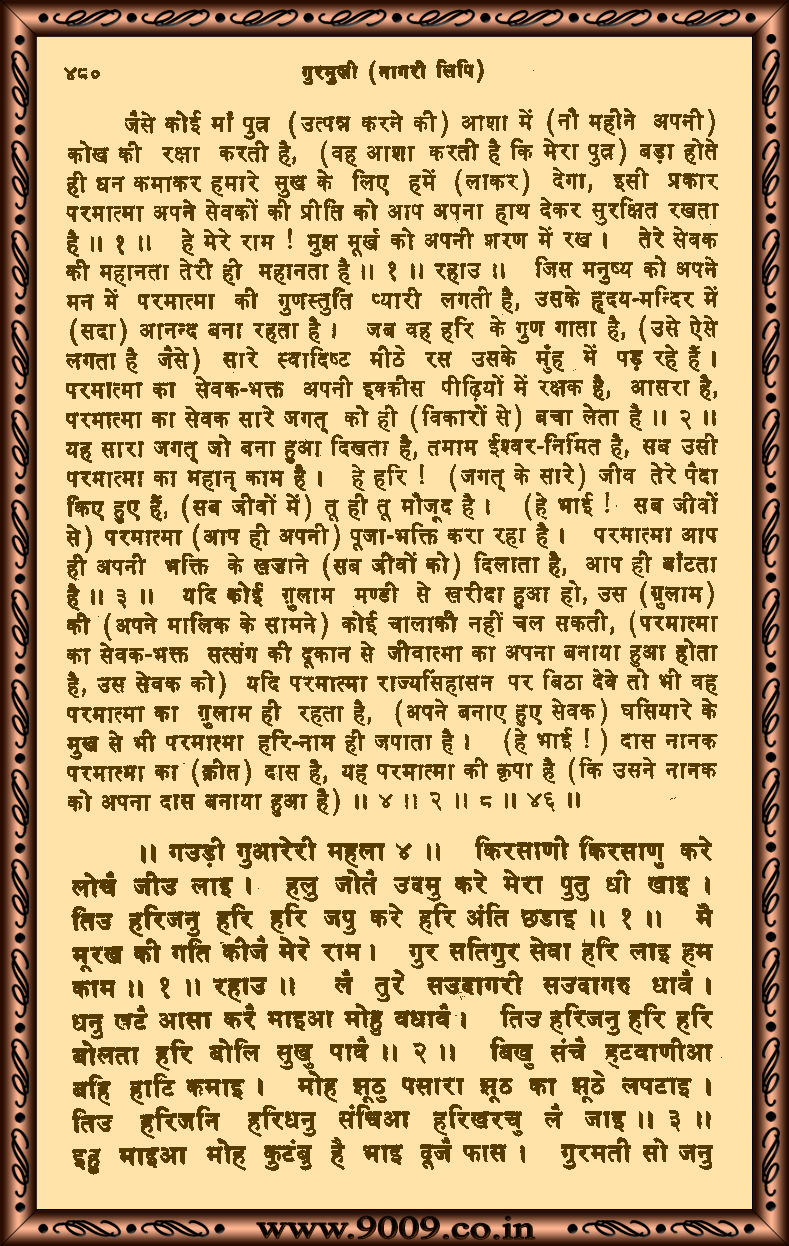 ४८० गुरमुखी (नागरी लिपि)
जैसे कोई माँ पुत्र (उत्पन्न करने की) आशा में (नौ महीने अपनी)
कोख की रक्षा करती है, (वह आशा करती है कि मेरा पुत्र) बड़ा होते
ही धन कमाकर हमारे सुख के लिए हमें (लाकर) देगा, इसी प्रकार
परमात्मा अपने सेवकों की प्रीति को आप अपना हाथ देकर सुरक्षित रखता
है ॥ १ ॥ हे मेरे राम ! मुझ मूर्ख को अपनी शरण में रख । तेरे सेवक
की महानता तेरी ही महानता है ॥ १ ॥ रहाउ ॥ जिस मनुष्य को अपने
मन में परमात्मा की गुणस्तुति प्यारी लगती है, उसके हृदय-मन्दिर में
(सदा) आनन्द बना रहता है । जब वह हरि के गुण गाता है, (उसे ऐसे
लगता है जैसे) सारे स्वादिष्ट मीठे रस उसके मुँह में पड़ रहे हैं ।
परमात्मा का सेवक-भक्त अपनी इक्कीस पीढ़ियों में रक्षक है, आसरा है,
परमात्मा का सेवक सारे जगत् को ही (विकारों से) बचा लेता है ॥ २ ॥
यह सारा जगत् जो बना हुआ दिखता है, तमाम ईश्वर-निर्मित है, सब उसी
परमात्मा का महान् काम है । हे हरि ! (जगत् के सारे) जीव तेरे पैदा
किए हुए हैं, (सब जीवों में) तू ही तू मौजूद है । (हे भाई ! सब जीवों
से) परमात्मा (आप ही अपनी) पूजा-भक्ति करा रहा है । परमात्मा आप
ही अपनी भक्ति के खज़ाने (सब जीवों को) दिलाता है, आप ही बाँटता
है ॥ ३ ॥ यदि कोई ग़ुलाम मण्डी से ख़रीदा हुआ हो, उस (ग़ुलाम)
की (अपने मालिक के सामने) कोई चालाकी नहीं चल सकती, (परमात्मा
का सेवक-भक्त सत्संग की दूकान से जीवात्मा का अपना बनाया हुआ होता
है, उस सेवक को) यदि परमात्मा राज्यसिंहासन पर बिठा देवे तो भी वह
परमात्मा का ग़ुलाम ही रहता है, (अपने बनाए हुए सेवक) घसियारे के
मुख से भी परमात्मा हरि-नाम ही जपाता है । (हे भाई ! ) दास नानक
परमात्मा का (क्रीत) दास है, यह परमात्मा की कृपा है (कि उसने नानक
को अपना दास बनाया हुआ है) ॥ ४ ॥ २ ॥ ८ ॥ ४६ ॥
॥ गउड़ी गुआरेरी महला ४ ॥ किरसाणी किरसाणु करे
लोचै जीउ लाइ । हलु जोतै उदमु करे मेरा पुतु धी खाइ ।
तिउ हरिजनु हरि हरि जपु करे हरि अंति छडाइ ॥ १ ॥ मै
मूरख की गति कीजै मेरे राम । गुर सतिगुर सेवा हरि लाइ हम
काम ॥ १ ॥ रहाउ ॥ लै तुरे सउदागरी सउदागरु धावै ।
धनु खटै आसा करै माइआ मोहु वधावै । तिउ हरिजनु हरि हरि
बोलता हरि बोलि सुखु पावै ॥ २ ॥ बिखु संचै हटवाणीआ
बहि हाटि कमाइ । मोह झूठु पसारा झूठ का झूठे लपटाइ ।
तिउ हरिजनि हरिधनु संचिआ हरिखरचु लै जाइ ॥ ३ ॥
इहु माइआ मोह कुटंबु है भाइ दूजै फास । गुरमती सो जनु
www.9009.co.in